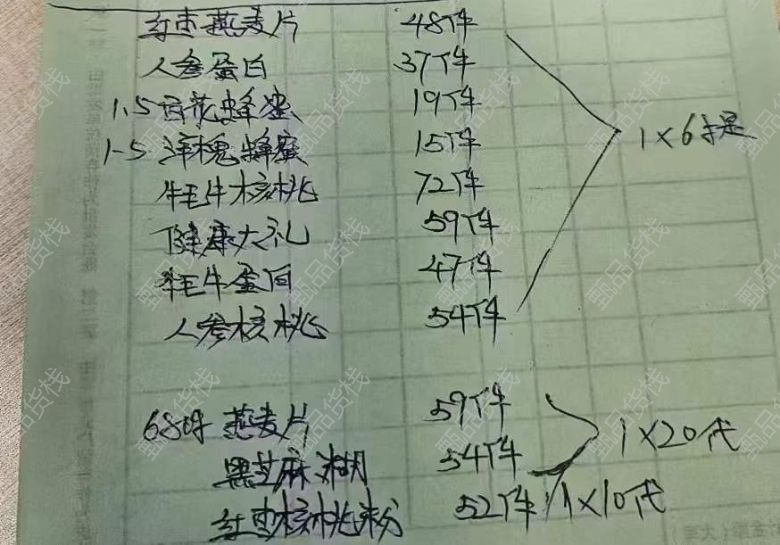 红枣燕麦片 48件
人参蛋白 37件
1.5百花蜂蜜 19件
1.5洋槐蜂蜜 15件 1×6提
牦牛核桃 72件
健康大礼 59件
牦牛蛋白 47件
人参核桃 54件
680呀 燕麦片 59件
黑芝麻糊 54件 1×20代
红枣核桃粉 52件 1×10代
甄品货栈